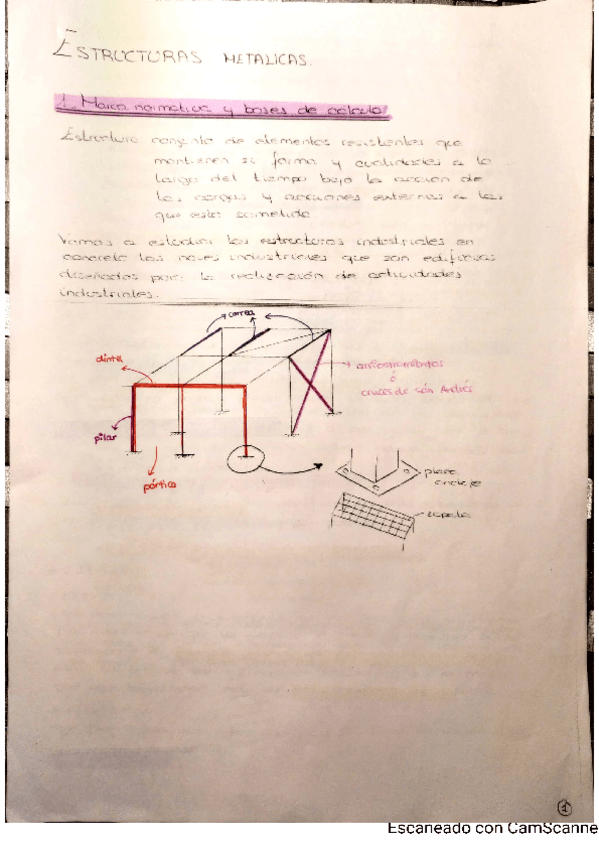 ESTRUCTURAS METALICAS.
1. Marco normativo y bases de cálculo
Estructura conjunto de elementos resistentes que
mantienen su forma y cualidades a lo
largo del tiempo bajo la acción de
las cargas y acciones externas a las
que estar sometido
Vamos a estudiar las estructuras industriales en
concreto las naves industriales que son edificios
diseñados para la realización de actividades
industriales.
correa
dintel
arriostramientos
ó
cruces de San Andrés
pilar
pórtico
placa
anclaje
zapata
1
Escaneado con CamScanne